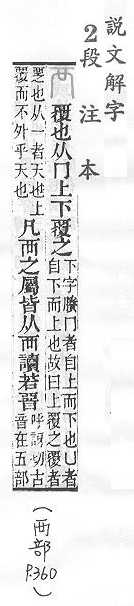 說文解字
2段注本
襾
覆也从冂上下覆之
下字賸冂者自上而下也凵者
自下而上也故曰上覆之覆者
覂也从一者天也上
覆而不外乎天也
凡襾之屬皆从襾讀若晉
呼訝切古
音在五部
(襾部 P.360)